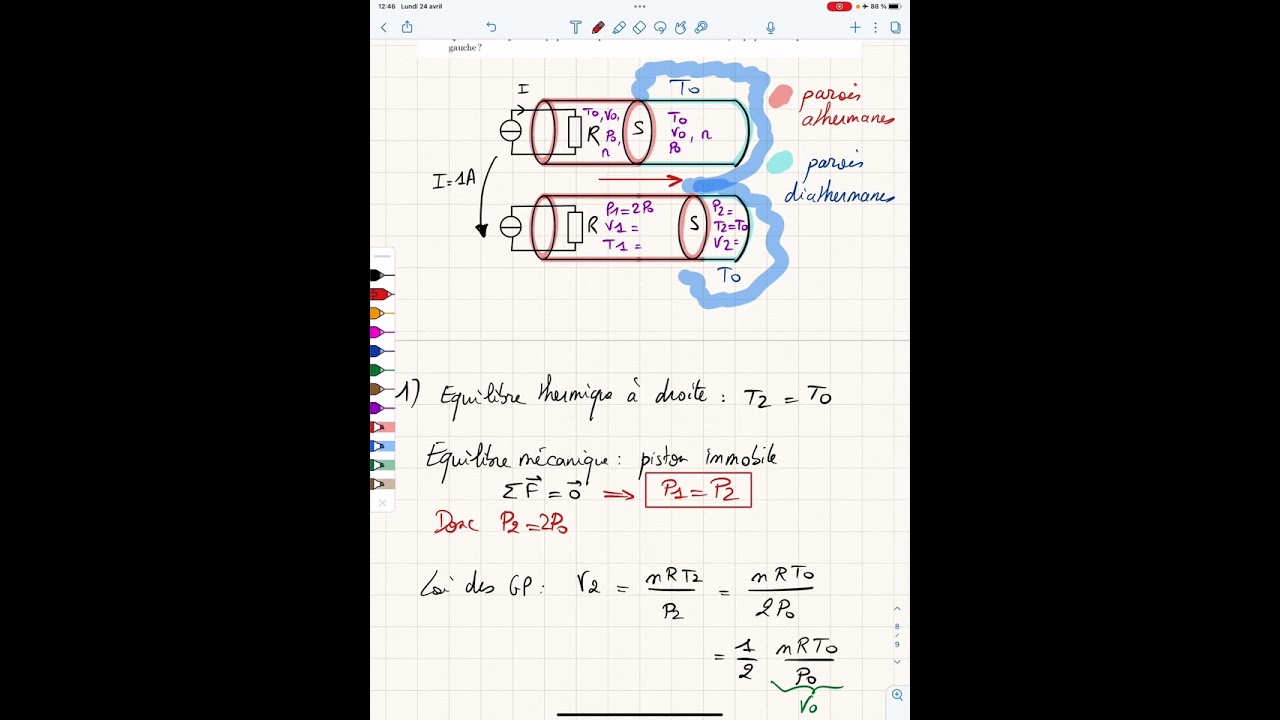 12:46 Lundi 24 avril
88 %
gauche ?
I
T0
parois
athermanes
T0, V0,
P0,
n
R
S
T0
V0, n
P0
parois
diathermanes
I=1A
R
P1=2P0
V1=
T1=
S
P2=
T2=T0
V2=
T0
1) Equilibre thermique à droite : T2 = T0
Equilibre mécanique : piston immobile
ΣF⃗ = 0⃗ ⟹ P1 = P2
Donc P2 = 2P0
Loi des GP : V2 = nRT2 / P2 = nRT0 / 2P0
= 1/2 nRT0 / P0
V0
8
/
9